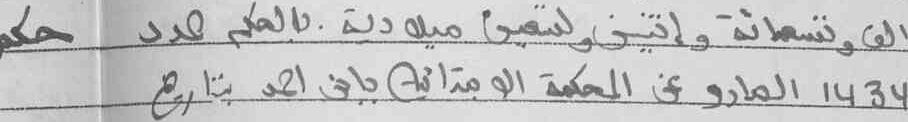 الف وتسعمائة وإثنين وتسعين ميلادية. بالحكم عدد حكم
1434 الصادر عن المحكمة الابتدائية باخر احمد بتاريخ